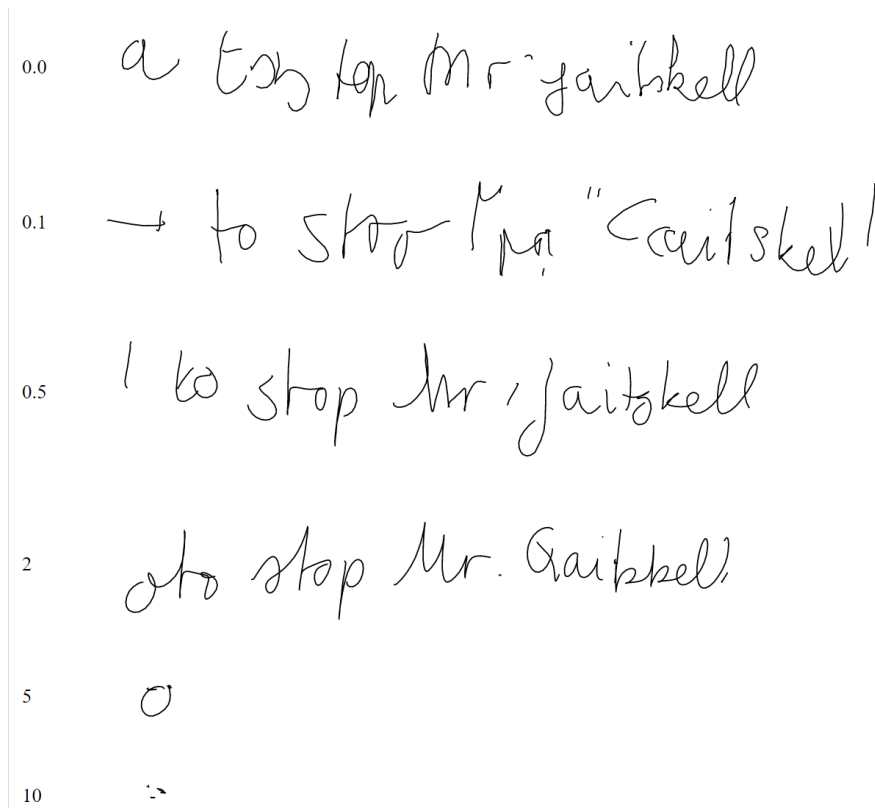 0.0 a top Mr. jaitskell
0.1 to "Caitskel'
0.5 to stop Mr. jaitskell
2 oto stop Mr. Gaitskell
5 o
10